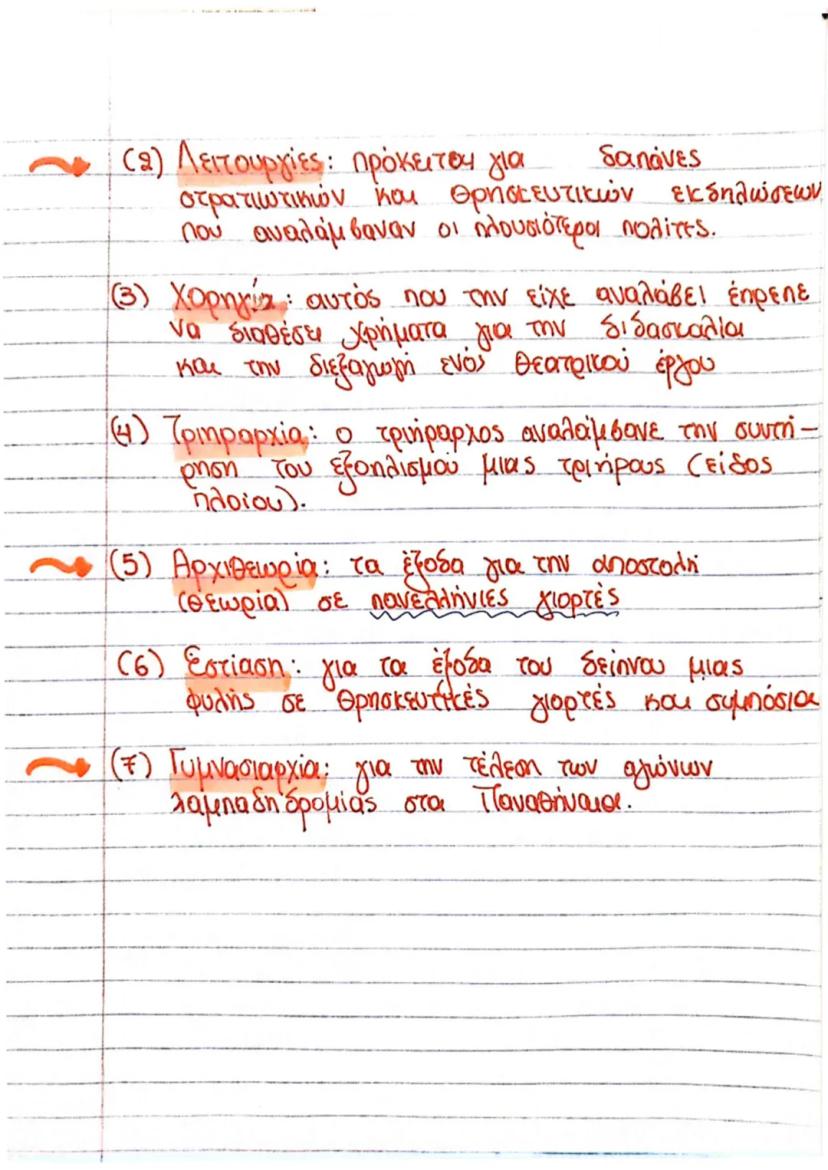 (2) Λειτουργίες: πρόκειται για δαπάνες
στρατιωτικών και θρησκευτικών εκδηλώσεων
που αναλάμβαναν οι πλουσιότεροι πολίτες.
(3) Χορηγία: αυτός που την είχε αναλάβει έπρεπε
να διαθέσει χρήματα για την διδασκαλία
και την διεξαγωγή ενός θεατρικού έργου
(4) Τριηραρχία: ο τριήραρχος αναλάμβανε την συντή-
ρηση του εξοπλισμού μιας τριήρους (είδος
πλοίου).
(5) Αρχιθεωρία: τα έξοδα για την αποστολή
(θεωρία) σε πανελλήνιες γιορτές
(6) Εστίαση: για τα έξοδα του δείπνου μιας
φυλής σε θρησκευτικές γιορτές και συμπόσια
(7) Γυμνασιαρχία: για την τέλεση των αγώνων
λαμπαδηδρομίας στα Παναθήναια.